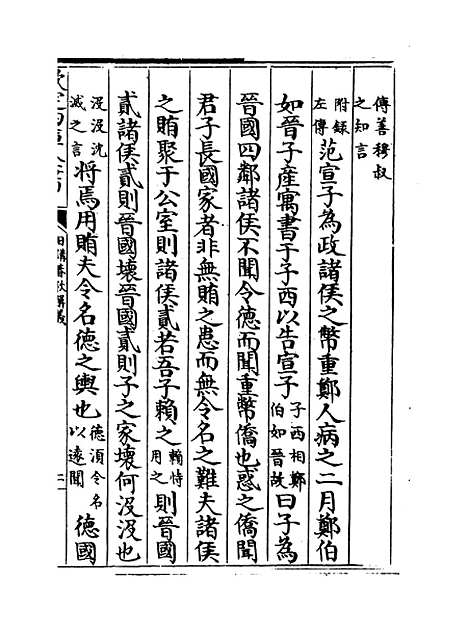 傳善穆叔
之知言
附録
左傳
范宣子為政諸侯之幣重鄭人病之二月鄭伯
如晉子産寓書于子西以告宣子
子西相鄭
伯如晉故
曰子為
晉國四鄰諸侯不聞令德而聞重幣僑也惑之僑聞
君子長國家者非無賄之患而無令名之難夫諸侯
之賄聚于公室則諸侯貳若吾子賴之
賴恃
用之
則晉國
貳諸侯貳則晉國壞晉國貳則子之家壞何沒沒也
沒沒沈
滅之言
將焉用賄夫令名德之輿也
德須令名
以遠聞
德國
日講春秋解義